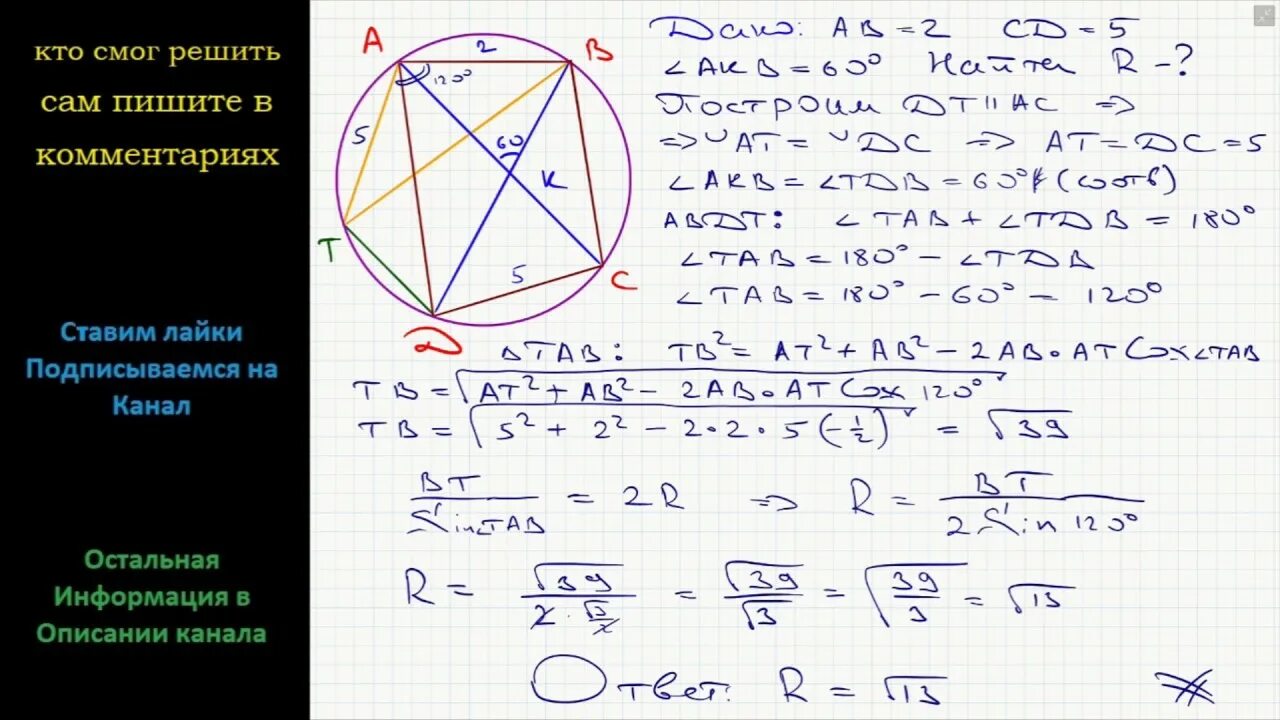 кто смог решить
сам пишите в
комментариях
Ставим лайки
Подписываемся на
Канал
Остальная
Информация в
Описании канала
A
2
B
120°
5
60
K
T
5
C
D
Дано: AB = 2 CD = 5
∠AKB = 60° Найти R - ?
Построим DT || AC ⇒
⇒ ◡AT = ◡DC ⇒ AT = DC = 5
∠AKB = ∠TDB = 60° (соотв)
ABDT: ∠TAB + ∠TDB = 180°
∠TAB = 180° - ∠TDB
∠TAB = 180° - 60° = 120°
△TAB: TB² = AT² + AB² - 2AB·AT Cos∠TAB
TB = √(AT² + AB² - 2AB·AT Cos 120°)
TB = √(5² + 2² - 2·2·5(-1/2)) = √39
BT / Sin∠TAB = 2R ⇒ R = BT / 2 Sin 120°
R = √39 / (2·√3/2) = √39 / √3 = √(39/3) = √13
Ответ: R = √13